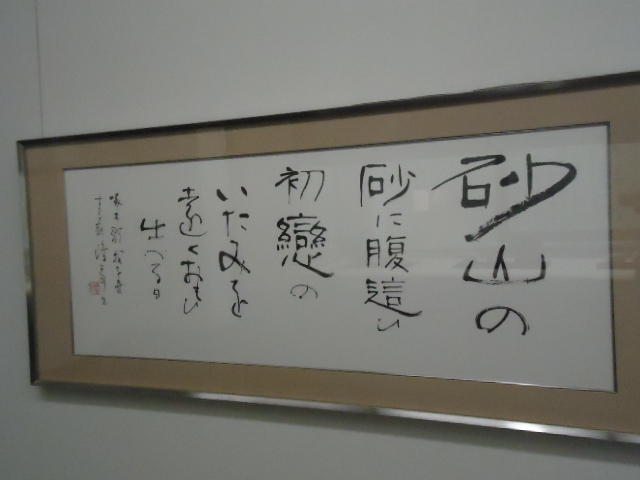 砂山の
砂に腹這い
初戀の
いたみを
遠くおもひ
出づる日
啄木